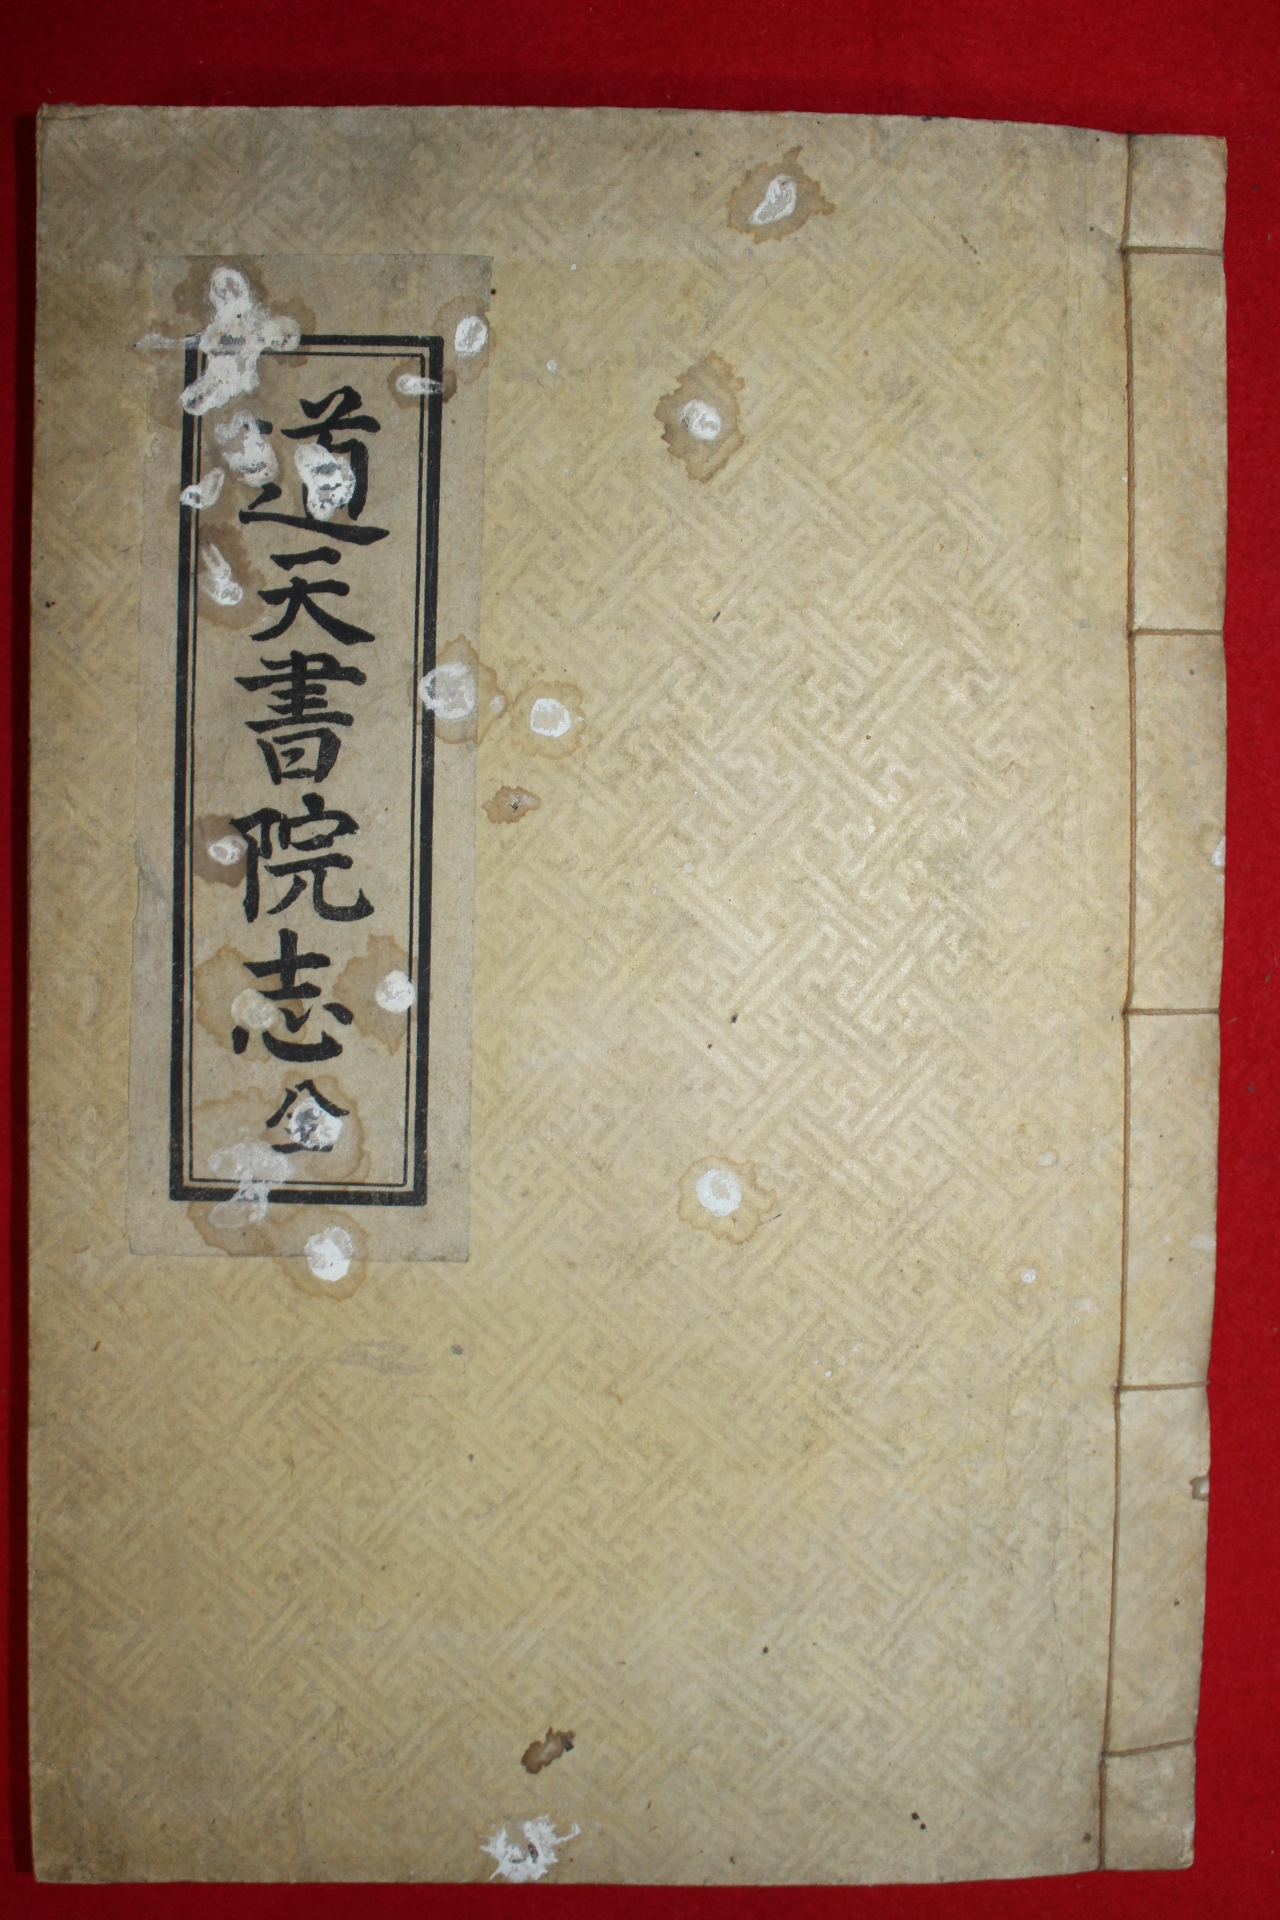 道天書院志 全